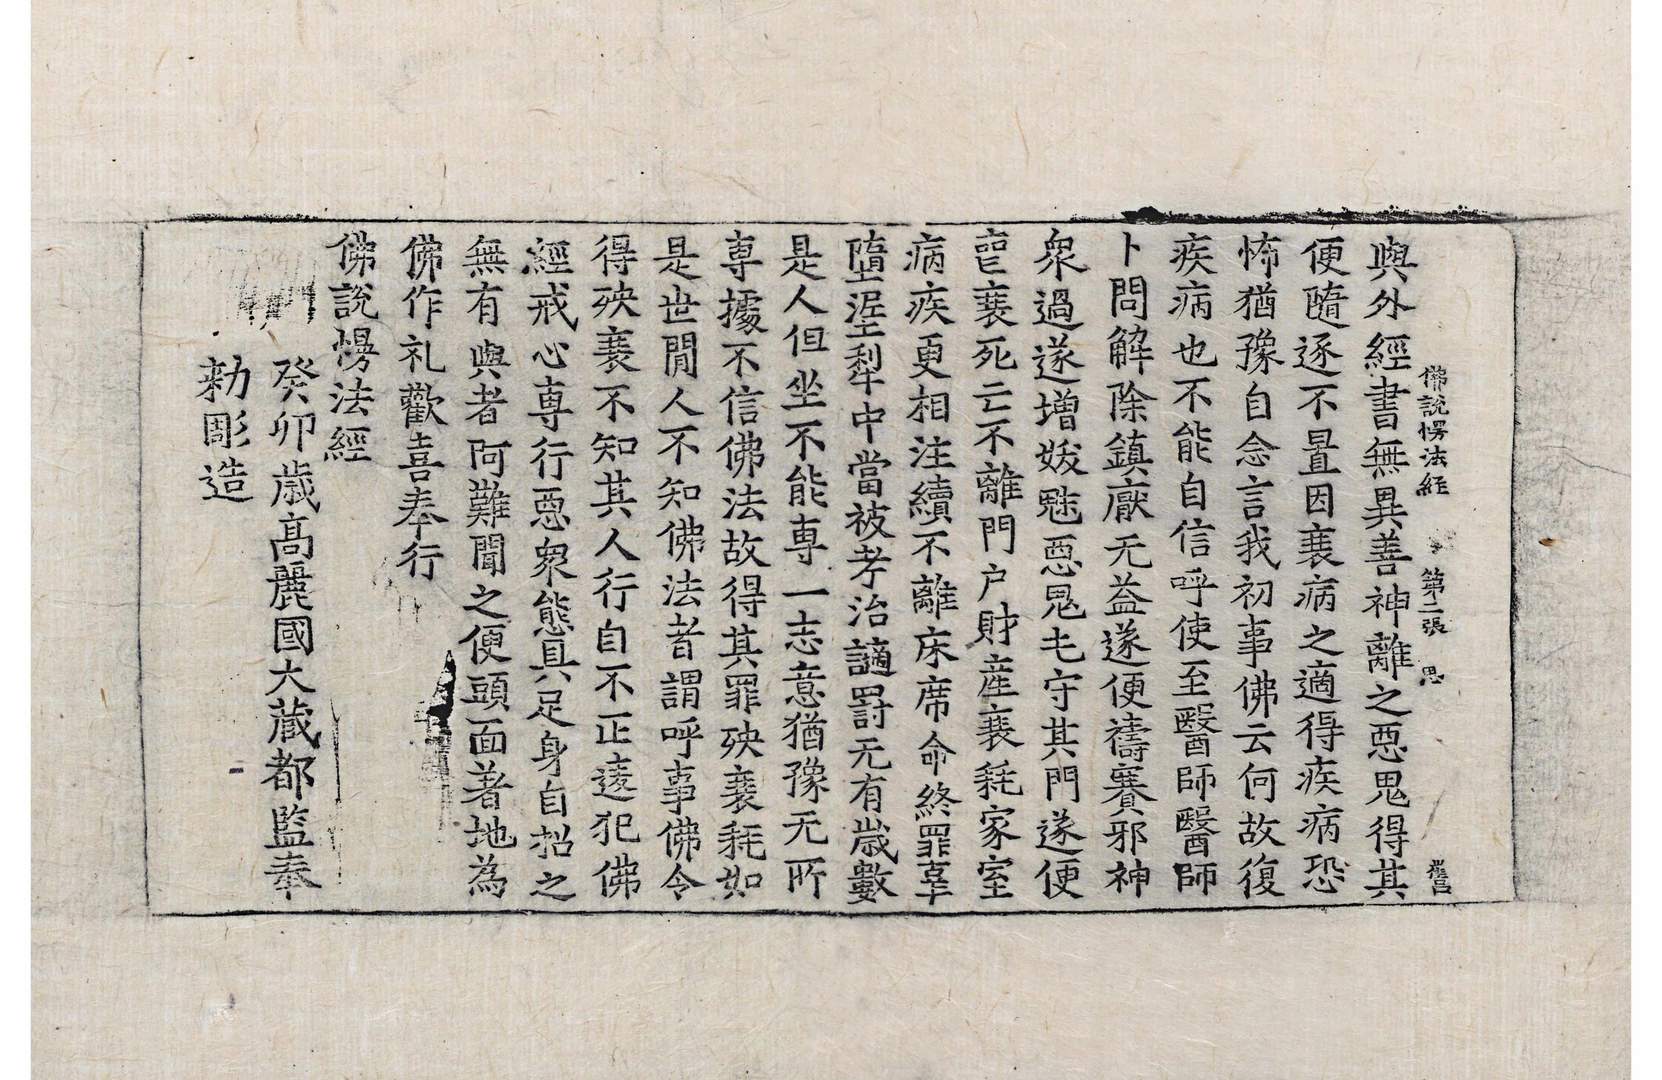 佛說愣法経 第二張 思
與外經書無異善神離之惡鬼得其
便隨逐不置因衰病之適得疾病恐
怖猶豫自念言我初事佛云何故復
疾病也不能自信呼使至醫師醫師
卜問解除鎮厭无益遂便禱賽邪神
衆過遂增妭魅惡鬼屯守其門遂便
喪衰死亡不離門户財產衰耗家室
病疾更相注續不離床席命終罪辜
墮泥犁中當被考治讁罸无有歲數
是人但坐不能專一志意猶豫无所
專據不信佛法故得其罪殃衰耗如
是世間人不知佛法者謂呼事佛令
得殃衰不知其人行自不正違犯佛
經戒心專行惡衆態具足身自招之
無有與者阿難聞之便頭面著地為
佛作礼歡喜奉行
佛說愣法經
癸卯歲高麗國大藏都監奉
勑彫造